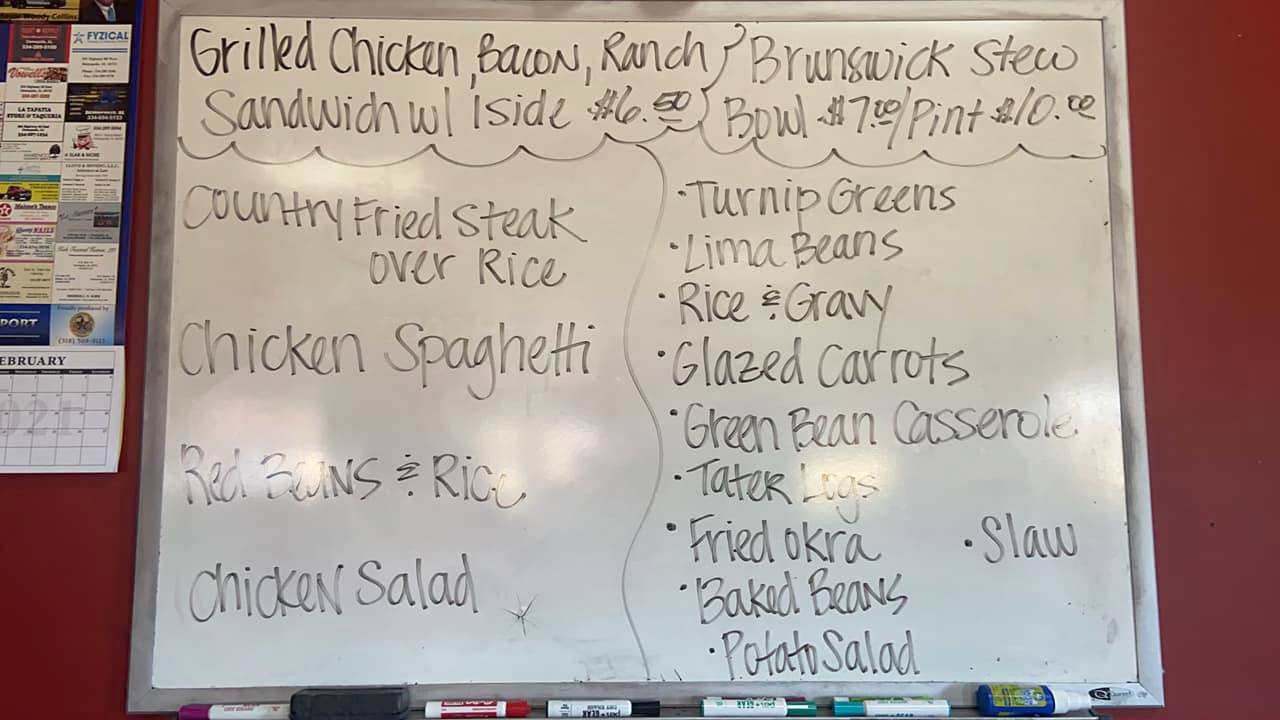 Grilled Chicken, Bacon, Ranch
Sandwich w/ 1 side $6.50
Brunswick Stew
Bowl $7.00/Pint $10.00
Country Fried Steak
over Rice
Chicken Spaghetti
Red Beans & Rice
Chicken Salad
•Turnip Greens
•Lima Beans
•Rice & Gravy
•Glazed Carrots
•Green Bean Casserole
•Tater Logs
•Fried Okra
•Slaw
•Baked Beans
•Potato Salad
FYZICAL
LA TAPATIA
STORE & TAQUERIA
PORT
EBRUARY
2021